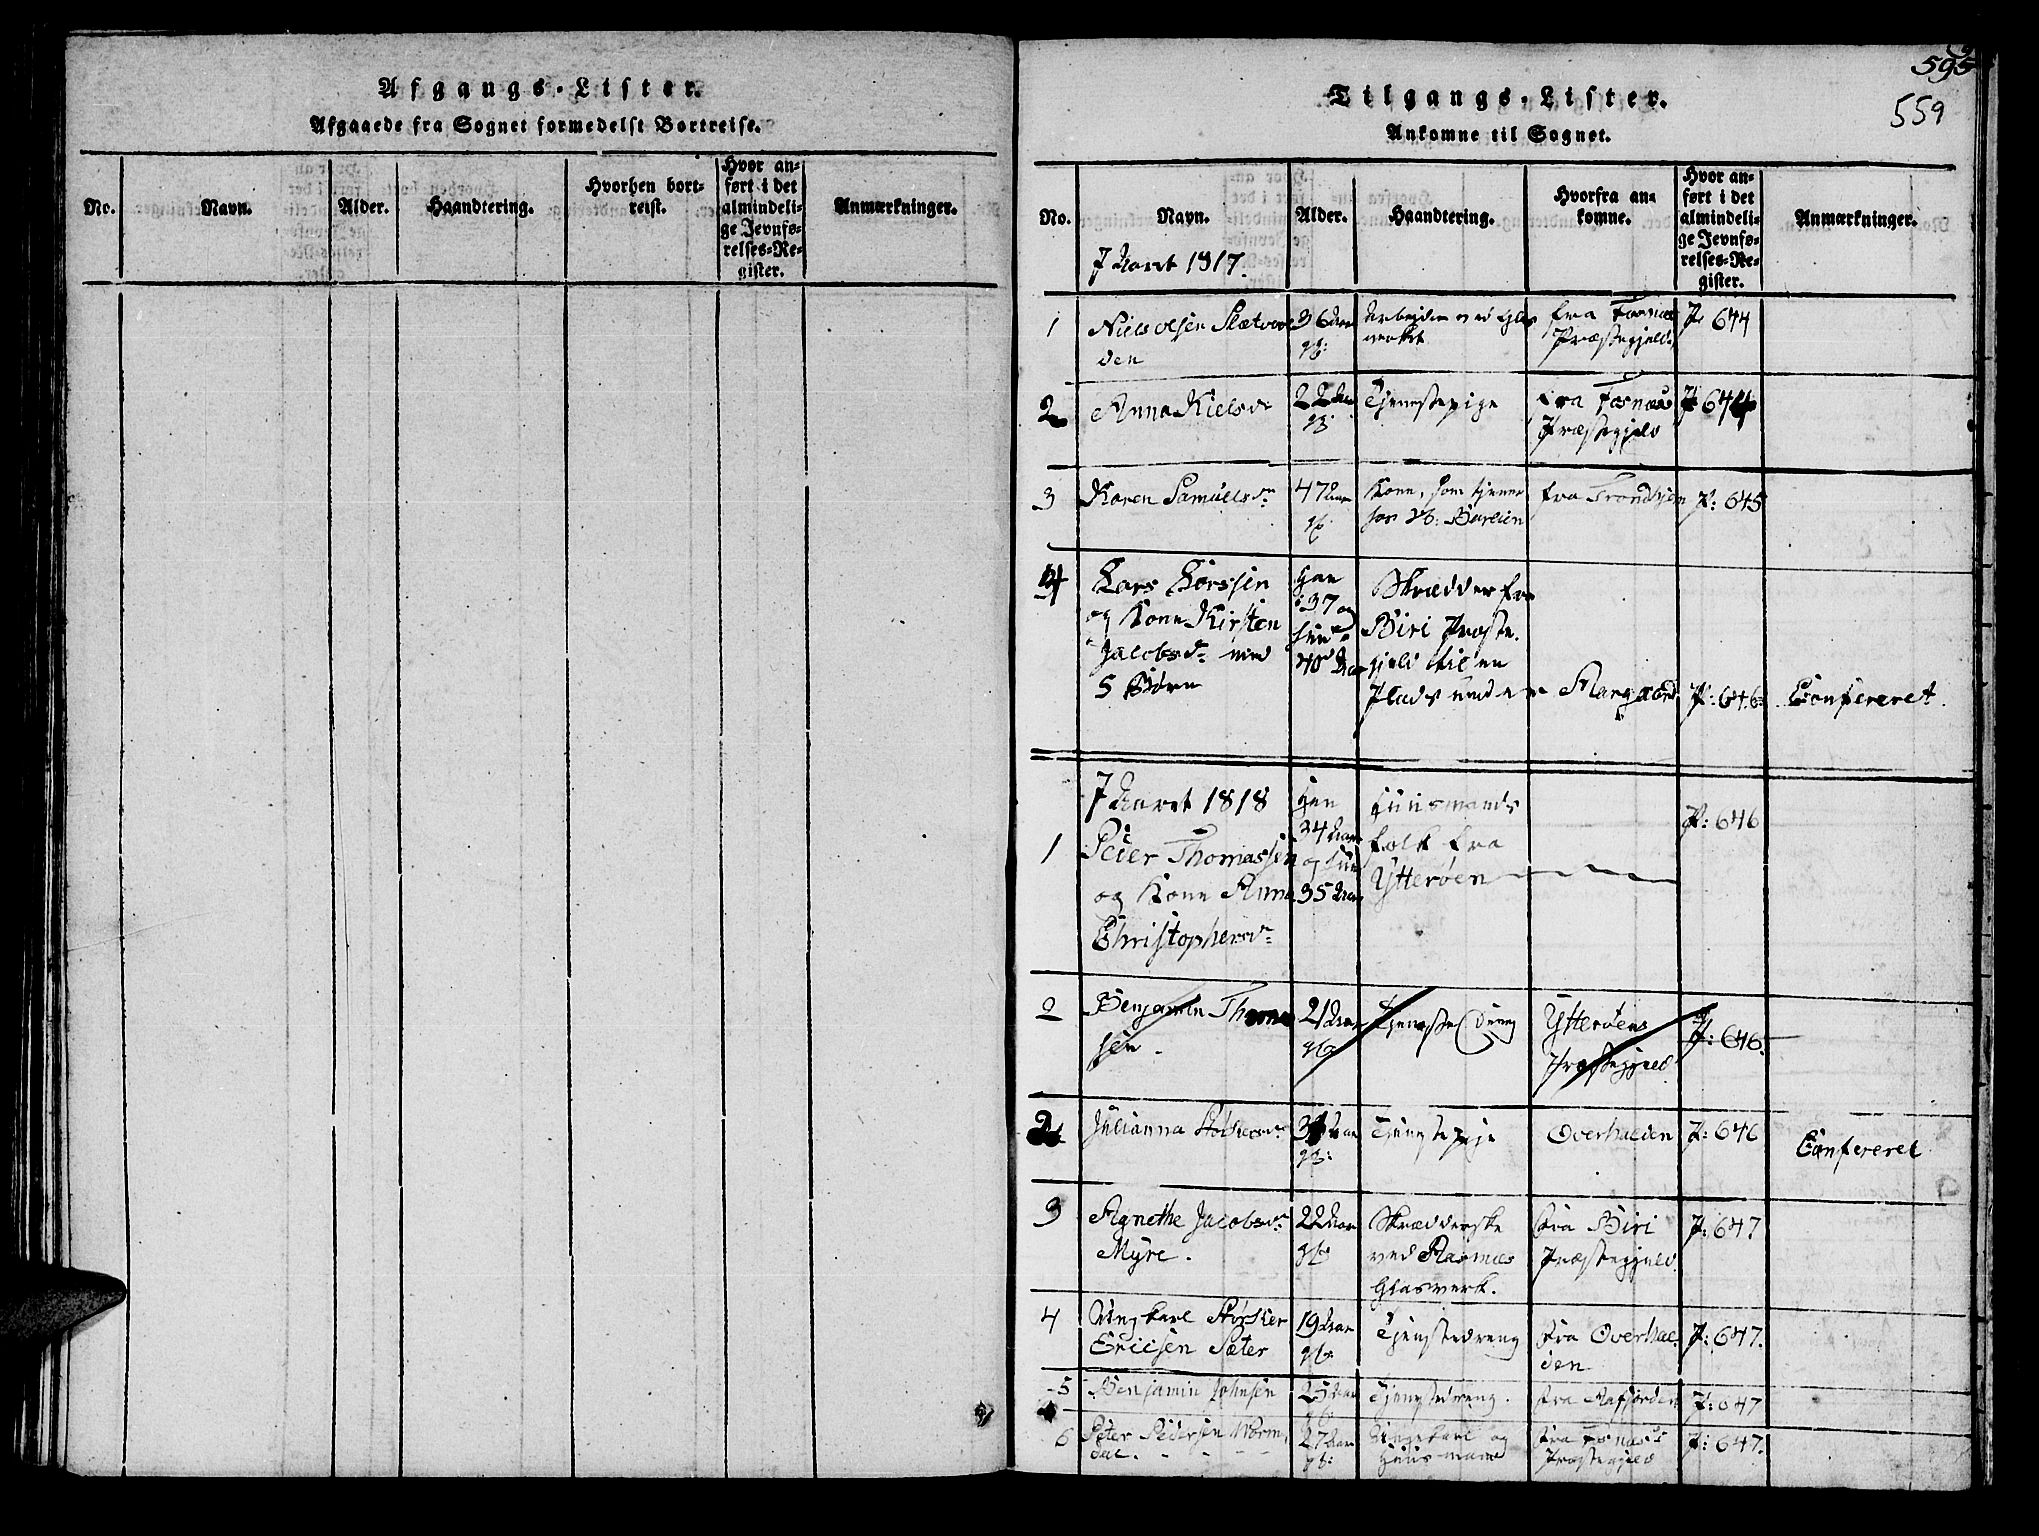 Afgangs-Lister.
Afgaaede fra Sognet formedelst Bortreise.
No.
Navn.
Alder.
Haandtering.
Hvorhen bort-
reist.
Hvor an-
ført i det
almindeli-
ge Jevnfø-
relses-Re-
gister.
Anmærkninger.
595
559
Tilgangs-Lister.
Ankomne til Sognet.
No.
Navn.
Alder.
Haandtering.
Hvorfra an-
komne.
Hvor an-
ført i det
almindeli-
ge Jevnfø-
relses-Re-
gister.
Anmærkninger.
I Aaret 1817.
1
Niels Olsen
den
36 Aar
gl:
Arbeider ved Glas
verket
fra Fosnæs
Præstegjeld
P. 644
2
Anna Nielsdr
22 Aar
gl:
Tjenestepige
fra Fosnæs
Præstegjeld
P 644
3
Karen Samuelsdr
47 Aar
gl:
Kone, som tjener
hos
fra Trondhjem
P: 645
4
Lars Larssen
og Kone Kirsten
Jacobsdr med
5 Børn
Han
37 og
hun
40 Aar
Skrædder fra
Biri Præste-
gjeld til en
Plads under
P: 646
Confereret
I Aaret 1818
1
Peter Thomassen
og Kone Anna
Christophersdr
Han
34 Aar
og hun
35 Aar
Huusmands
folk fra
Ytterøen
P: 646
2
Benjamin Thomas
sen.
21 Aar
gl:
Tjenestedreng
Ytterøens
Præstegjeld
P: 646.
2
Julianna
Aar
gl:
Tjenestepige
Overhalden
P: 646
Confereret
3
Agnethe Jacobsdr
Myre.
22 Aar
gl:
Skrædderske
ved
Glasverk.
fra Biri
Præstegjeld.
P: 647
4
Ungkarl Størker
Ericsen Sæter
19 Aar
gl:
Tjenestedreng
fra Overhal
den
P: 647.
5
Benjamin Johnsen
25 Aar
gl:
Tjenestedreng.
fra Aafjorden
P: 647
6
Peter Pedersen Worm
dal.
27 Aar
gl:
Ungekarl og
Huusmand
fra Fosnæs
Præstegjeld
P: 647.